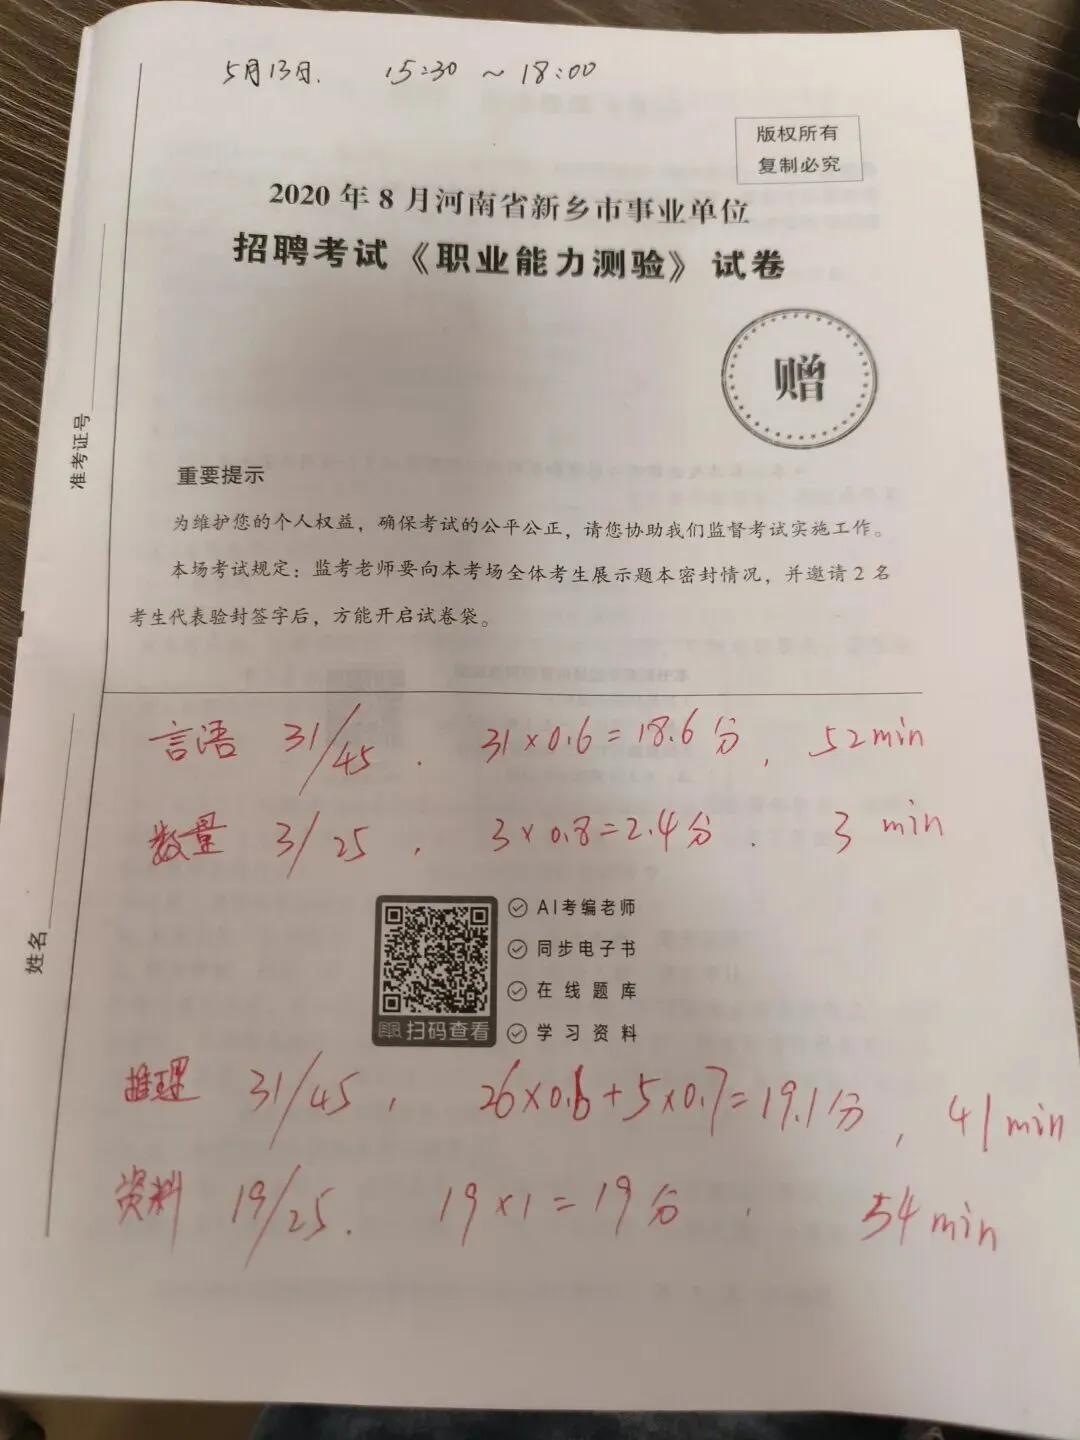 5月13日. 15:30 ~ 18:00
版权所有
复制必究
2020 年 8 月河南省新乡市事业单位
招聘考试《职业能力测验》试卷
赠
准考证号
重要提示
为维护您的个人权益，确保考试的公平公正，请您协助我们监督考试实施工作。
本场考试规定：监考老师要向本考场全体考生展示题本密封情况，并邀请 2 名
考生代表验封签字后，方能开启试卷袋。
言语 31/45 . 31×0.6=18.6分 , 52min
数量 3/25 , 3×0.8=2.4分 . 3 min
AI考编老师
同步电子书
在线题库
学习资料
扫码查看
姓名
推理 31/45 , 26×0.6+5×0.7=19.1分 , 41min
资料 19/25 . 19×1=19分 . 54min